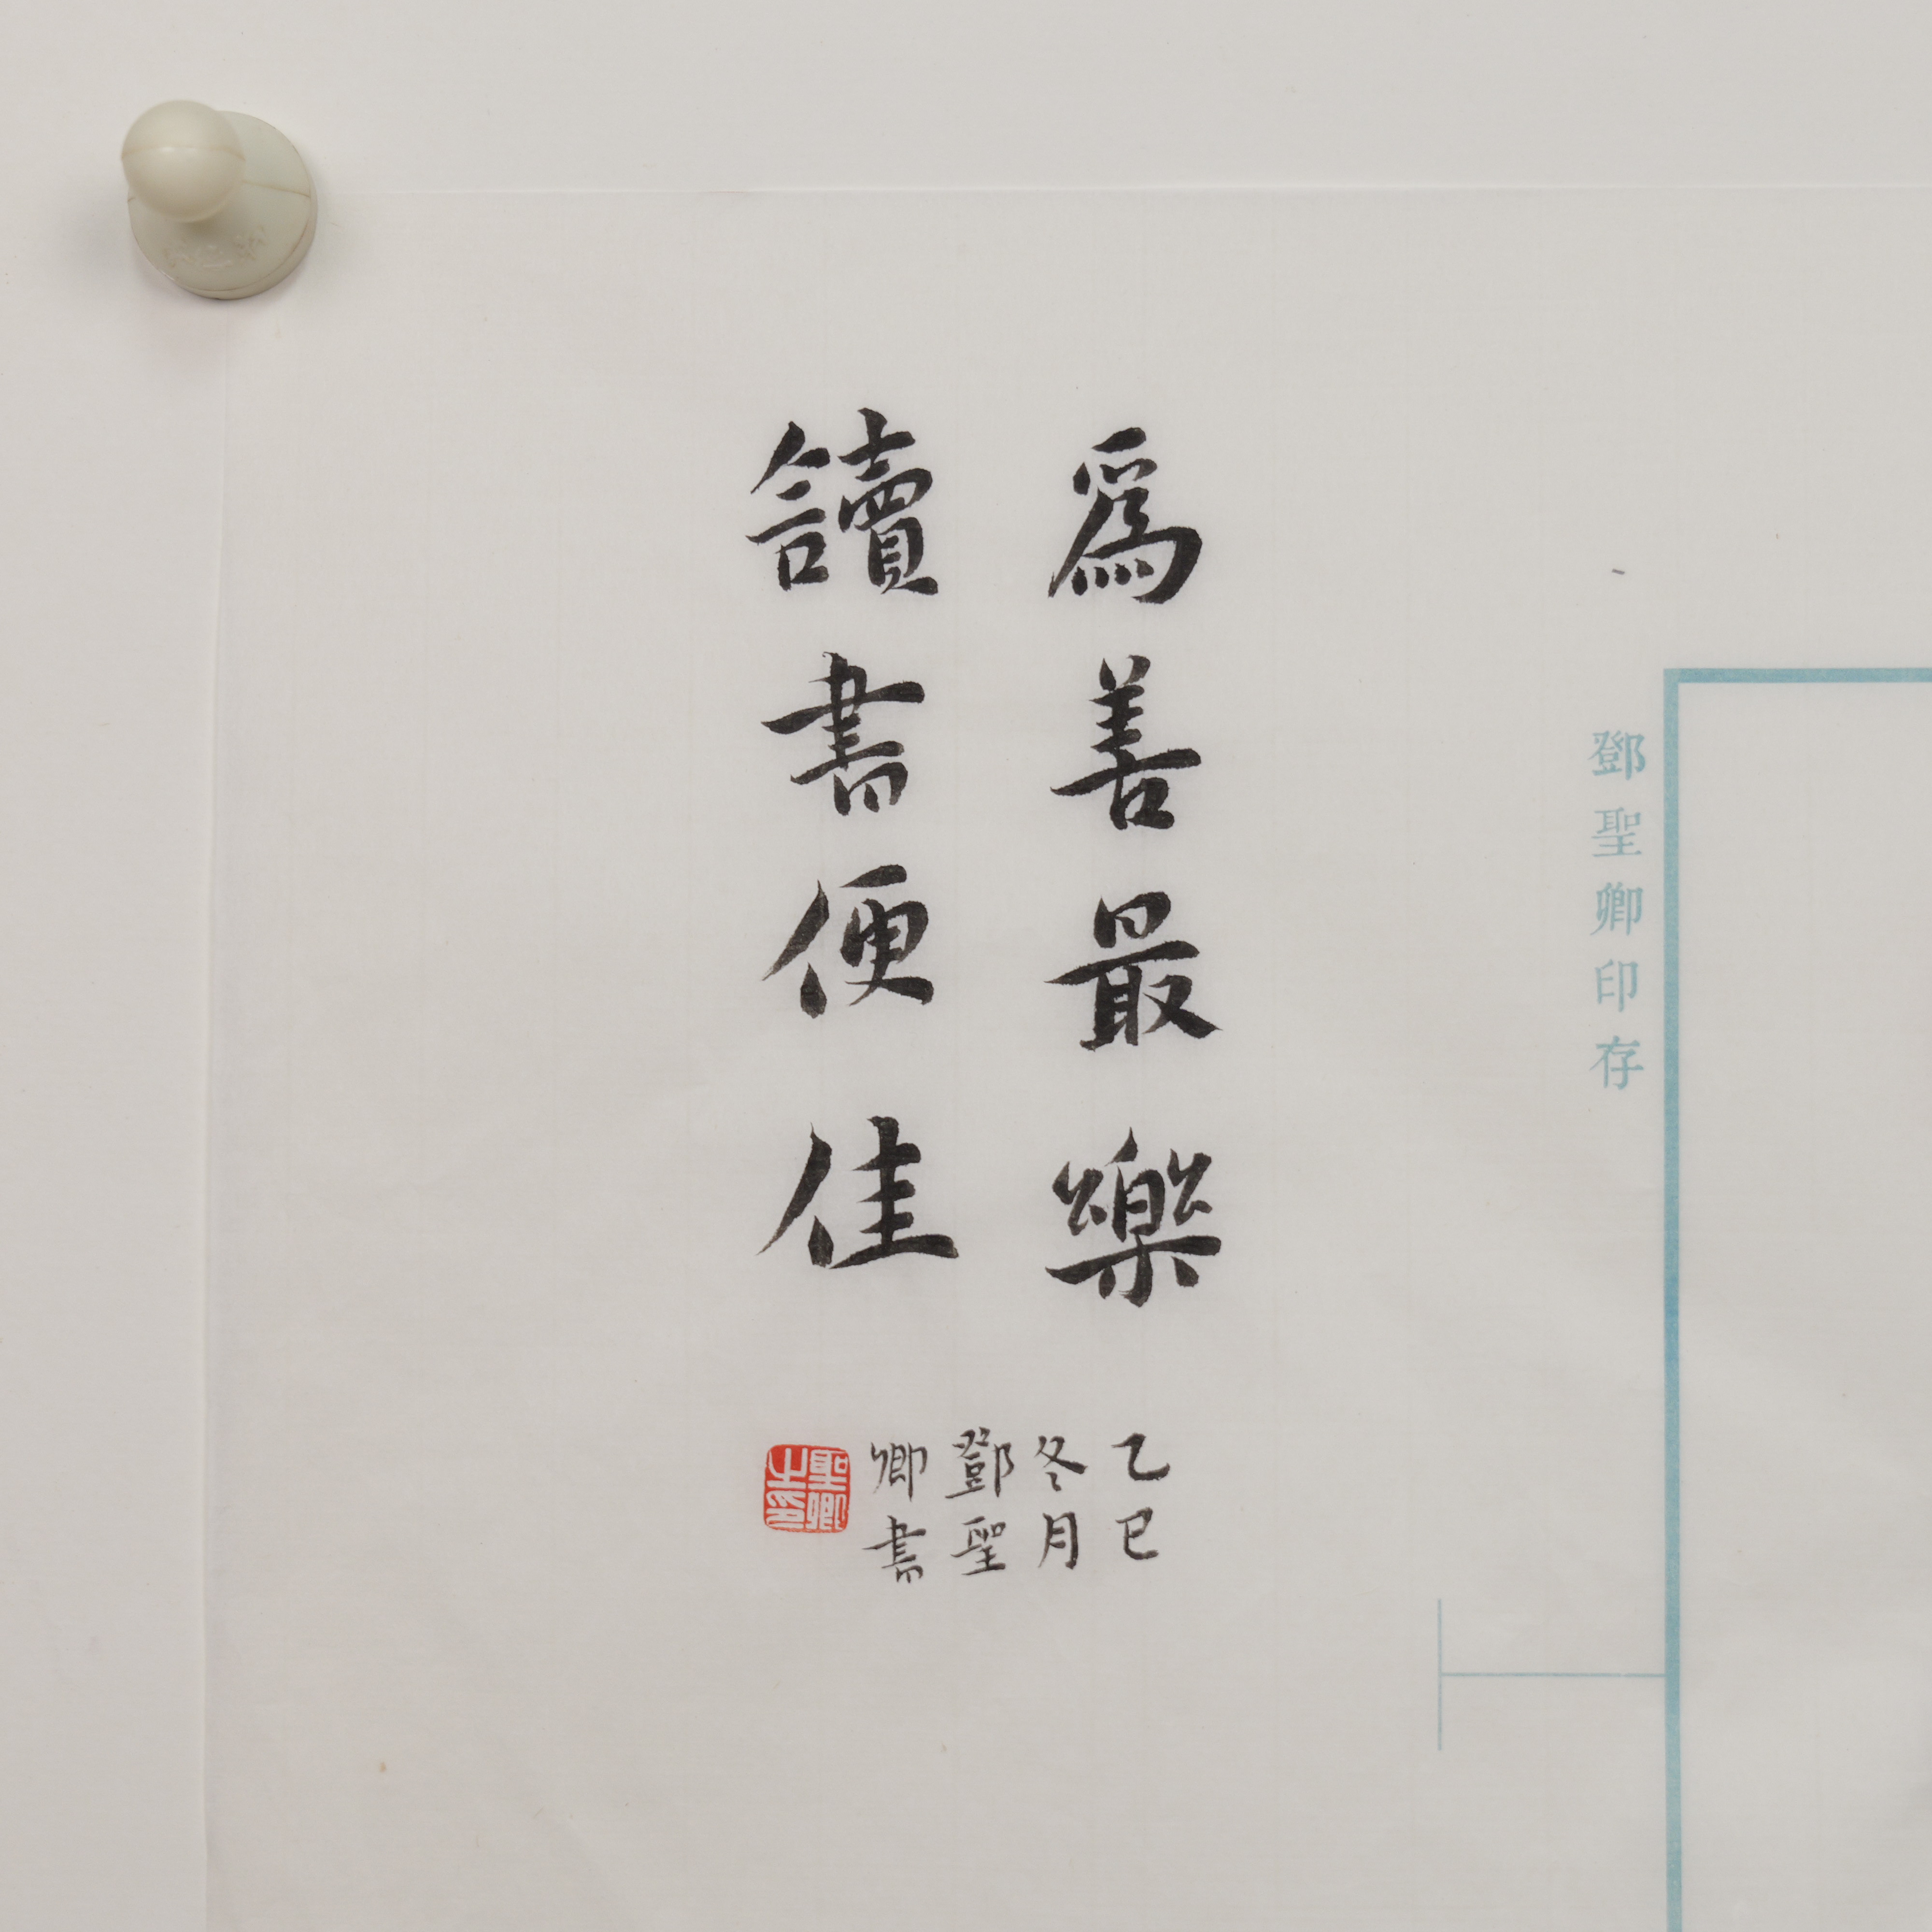 鄧聖卿印存
爲善最樂
讀書便佳
乙巳
冬月
鄧聖
卿書
聖卿
之印